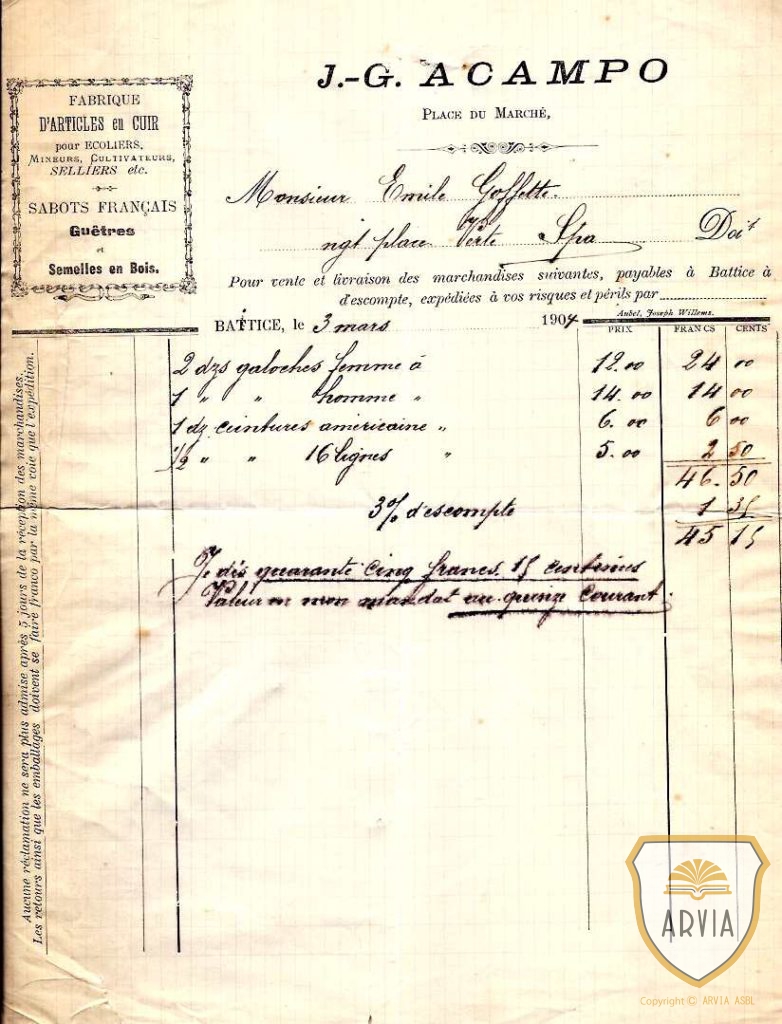 J.-G. ACAMPO
PLACE DU MARCHÉ,
FABRIQUE
D'ARTICLES en CUIR
pour ECOLIERS,
MINEURS, CULTIVATEURS,
SELLIERS etc.
SABOTS FRANÇAIS
Guêtres
et
Semelles en Bois.
Monsieur Emile Goffette
ngt place Verte Spa Doit
Pour vente et livraison des marchandises suivantes, payables à Battice à
d'escompte, expédiées à vos risques et périls par
Aubel, Joseph Willems.
BATTICE, le 3 mars 1904
PRIX FRANCS CENTS
2 dzs galoches femme à 12.00 24 00
1 " " homme " 14.00 14 00
1 dz ceintures américaine " 6.00 6 00
1/2 " " 16 lignes " 5.00 2 50
46.50
3% d'escompte 1 35
45 15
Je dis quarante cinq francs. 15 centimes
Valeur en mon mandat au quinze courant.
Aucune réclamation ne sera plus admise après 5 jours de la réception des marchandises.
Les retours ainsi que les emballages doivent se faire franco par la même voie que l'expédition.
ARVIA
Copyright © ARVIA ASBL